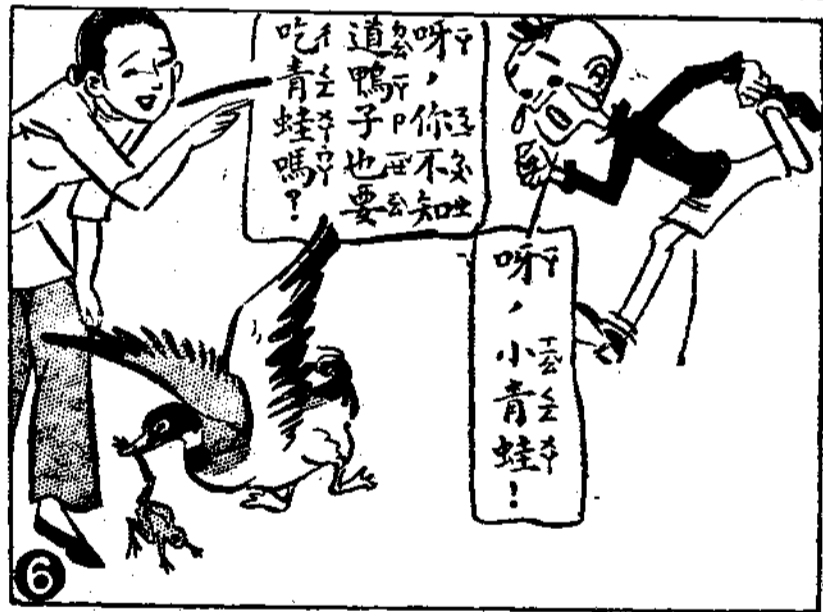 呀，你不知
道鴨子也要
吃青蛙嗎？
呀，小青蛙！
6